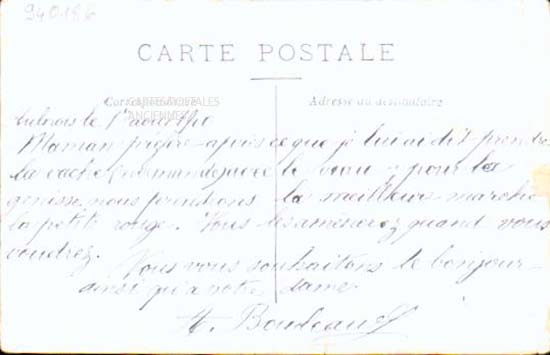 240186
CARTE POSTALE
Correspondance
CARTES POSTALES
ANCIENNES
Adresse du destinataire
le 1er août 1910
Maman préfère après ce que je lui ai dit prendre
la vache le veau pour les
genisse nous prendrons la meilleurs marché
la petite rouge. Vous les amènerez quand vous
voudrez.
Nous vous souhaitons le bonjour
ainsi qu'a votre dame
H. Bondeau